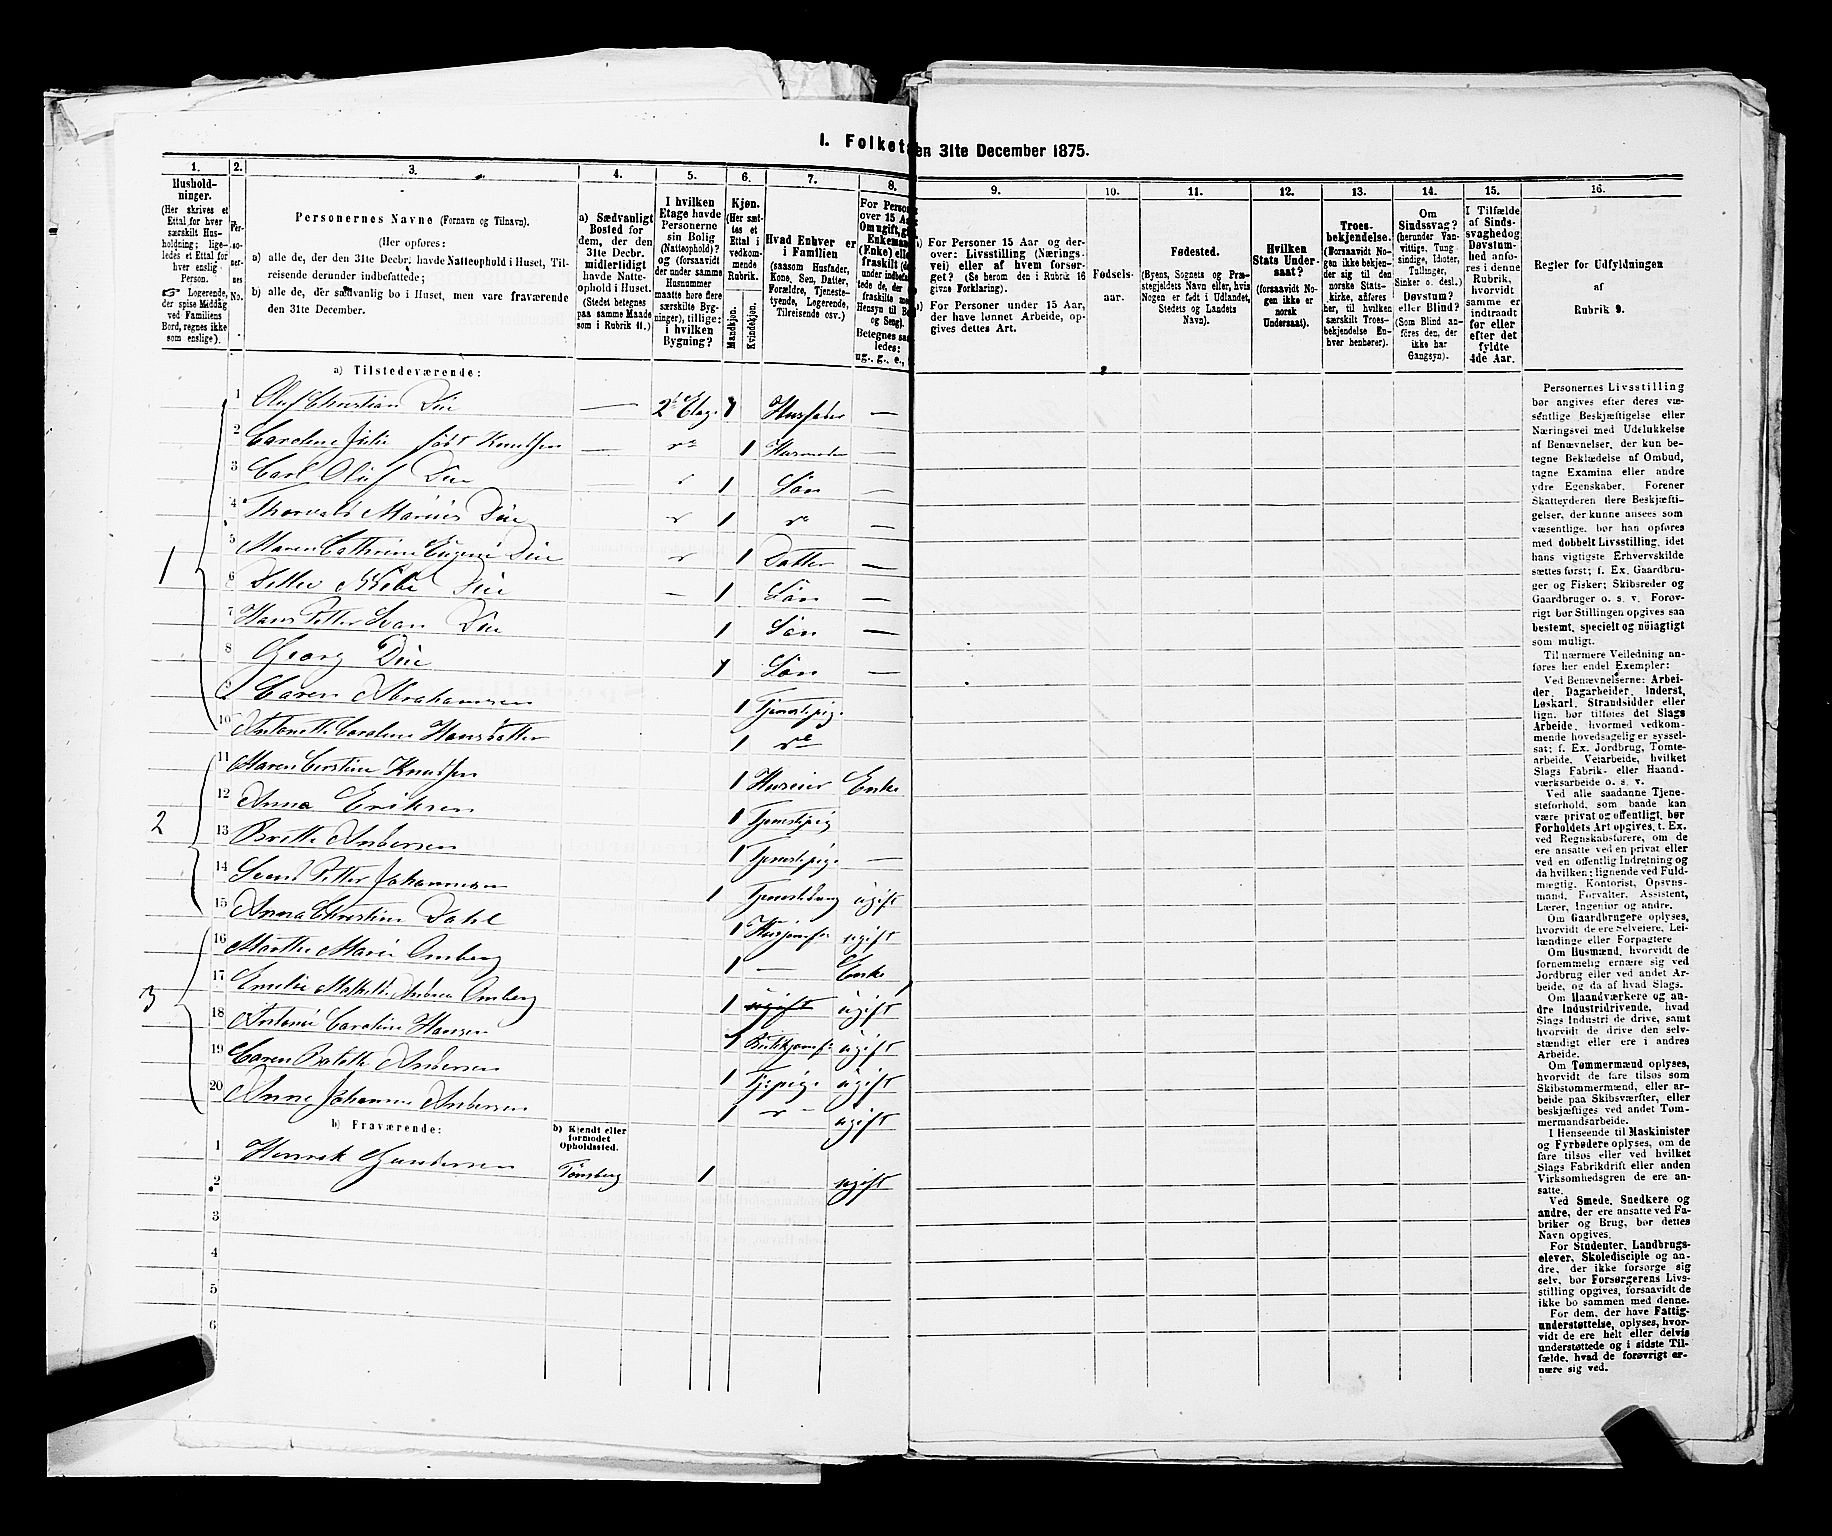 I. Folket
en 31te December 1875.
1.
Hushold-
ninger.
(Her skrives et
Ettal for hver
særskilt Hus-
holdning; lige-
ledes et Ettal for
hver enslig
Person.
☞ Logerende,
der spise Middag
ved Familiens
Bord, regnes ikke
som enslige).
2.
Per-
so-
ner-
nes
No.
3.
Personernes Navne (Fornavn og Tilnavn).
(Her opføres:
a) alle de, der den 31te Decbr. havde Natteophold i Huset, Til-
reisende derunder indbefattede;
b) alle de, der sædvanlig bo i Huset, men vare fraværende
den 31te December.
4.
a) Sædvanligt
Bosted for
dem, der den
31te Decbr.
midlertidigt
havde Natte-
ophold i Huset.
(Stedet betegnes
paa samme Maade
som i Rubrik 11.)
5.
I hvilken
Etage havde
Personerne
sin Bolig
(Natteophold)?
og (forsaavidt
der under samme
Husnummer
maatte høre flere
særskilte Byg-
ninger), tillige:
i hvilken
Bygning?
6.
Kjøn.
(Her sæt-
tes et
Ettal i
vedkom-
mende
Rubrik.
Mandkjøn.
Kvindekjøn.
7.
Hvad Enhver er
i Familien
(saasom Husfader,
Kone, Søn, Datter,
Forældre, Tjeneste-
tyende, Logerende,
Tilreisende osv.)
8.
For Person
over 15 Aar
Om ugift, g
Enkemand
(Enke) ell
fraskilt (d
under indbefat-
tede de,
fraskilte m
Hensyn til B
og Seng).
Betegnes saa
ledes:
ug., g., e.,
9.
For Personer 15 Aar og der-
over: Livsstilling (Nærings-
vei) eller af hvem forsør-
get? (Se herom den i Rubrik 16
givne Forklaring).
For Personer under 15 Aar,
der have lønnet Arbeide, op-
gives dettes Art.
10.
Fødsels-
aar.
11.
Fødested.
(Byens, Sognets og Præ-
stegjeldets Navn eller, hvis
Nogen er født i Udlandet,
Stedets og Landets
Navn).
12.
Hvilken
Stats Under-
saat?
(forsaavidt No-
gen ikke er
norsk
Undersaat).
13.
Troes-
bekjendelse.
(Forsaavidt No-
gen ikke bekjen-
der sig til den
norske Stats-
kirke, anføres
her, til hvilken
særskilt Troes-
bekjendelse En-
hver henhører).
14.
Om
Sindssvag?
(herunder Van-
vittige, Tung
sindige, Idioter,
Tullinger,
Sinker o. desl.)
Døvstum?
eller Blind?
(Som Blind an-
føres den, der
ikke har
Gangsyn).
15.
I Tilfælde
af Sinds-
svaghed og
Døvstum-
hed anfø-
res i denne
Rubrik,
hvorvidt
samme er
indtraadt
før eller
efter det
fyldte
4de Aar.
16.
Regler for Udfyldningen
af
Rubrik 9.
a) Tilstedeværende:
1 Oluf Christian Due — 2 Etage 1 Husfader —
2 Caroline Julie født Knudsen — 1 Husmoder —
3 Carl Oluf Due — 1 Søn —
4 Thorvald Marius Due 1 —
5 Maren Cathrine Eugenie Due 1 Datter —
6 Ditlev Due — 1 Søn —
7 Hans Petter Ivan Due 1 Søn —
8 Georg Due 1 Søn —
9 Caren Abrahamsen 1 Tjenestepige
10 Antonette Caroline Hansdatter 1
1
11 Maren Cerstine Knudsen 1 Enke
12 Anna Eriksen 1 Tjenestepig
13 Britte Andersen 1 Tjenestepige —
14 Svend Petter Johannesen 1 ugift
15 Anna Christine Dahl 1 Husjomfr ugift
2
16 Marthe Marie Omberg 1 — Enke
17 Emilie Mathilde Andrea Omberg 1 ugift ugift
18 Antonie Caroline Hansen 1 Butikjomfr ugift
19 Caren Andersen 1 Tj.pige ugift
20 Anne Johanne Andersen 1 ugift
3
b) Fraværende:
b) Kjendt eller
formodet
Opholdssted.
1 Henrik Gundersen Tønsberg 1 ugift
2
3
4
5
6
Personernes Livsstilling
bør angives efter deres væ-
sentlige Beskjæftigelse eller
Næringsvei med Udelukkelse
af Benævnelser, der kun be-
tegne Beklædelse af Ombud,
tagne Examina eller andre
ydre Egenskaber. Forener
Skatteyderen flere Beskjæfti-
gelser, der kunne ansees som
væsentlige, bør han opføres
med dobbelt Livsstilling, idet
hans vigtigste Erhvervskilde
sættes først; f. Ex. Gaardbru-
ger og Fisker; Skibsreder og
Gaardbruger o. s. v. Forøv-
rigt bør Stillingen opgives saa
bestemt, specielt og nöiagtigt
som muligt.
Til nærmere Veiledning an-
føres her endel Exempler:
Ved Benævnelserne: Arbei-
der, Dagarbeider, Inderst,
Løskarl, Strandsidder eller
lign. bør tilføres det Slags
Arbeide, hvormed vedkom-
mende hovedsagelig er syssel-
sat; f. Ex. Jordbrug, Tomte-
arbeide, Veiarbeide, hvilket
Slags Fabrik- eller Haand-
værksarbeide o. s. v.
Ved alle saadanne Tjene-
steforhold, som baade kan
være privat og offentligt, bør
Forholdets Art opgives, t. Ex.
ved Regnskabsførere, om de
ere ansatte ved en privat eller
ved en offentlig Indretning og
da hvilken; lignende ved Fuld-
mægtig, Kontorist, Opsyns-
mand, Forvalter, Assistent,
Lærer, Ingeniør og andre.
Om Gaardbrugere oplyses,
hvorvidt de ere Selveiere, Lei-
lændinge eller Forpagtere
Om Husmænd, hvorvidt de
fornemmelig ernære sig ved
Jordbrug eller ved andet Ar-
beide, og da af hvad Slags.
Om Haandværkere og an-
dre Industridrivende, hvad
Slags Industri de drive, samt
hvorvidt de drive den selv-
stændigt eller ere i andres
Arbeide.
Om Tømmermænd oplyses,
hvorvidt de fare tilsøs som
Skibstømmermænd, eller ar-
beide paa Skibsværfter, eller
beskjæftiges ved andet Tøm-
mermandsarbeide.
I Henseende til Maskinister
og Fyrbødere oplyses, om de
fare tilsøs eller ved hvilket
Slags Fabrikdrift eller anden
Virksomhedsgren de ere an-
satte.
Ved Smede, Snedkere og
andre, der ere ansatte ved Fa-
briker og Brug, bør dettes
Navn opgives.
For Studenter, Landbrugs-
elever, Skoledisciple og an-
dre, der ikke forsørge sig
selv, bør Forsørgerens Livs-
stilling opgives, forsaavidt de
ikke bo sammen med denne.
For dem, der have Fattig-
understøttelse, oplyses, hvor-
vidt de ere helt eller delvis
understøttede og i sidste Til-
fælde, hvad de forøvrigt er-
nære sig ved.